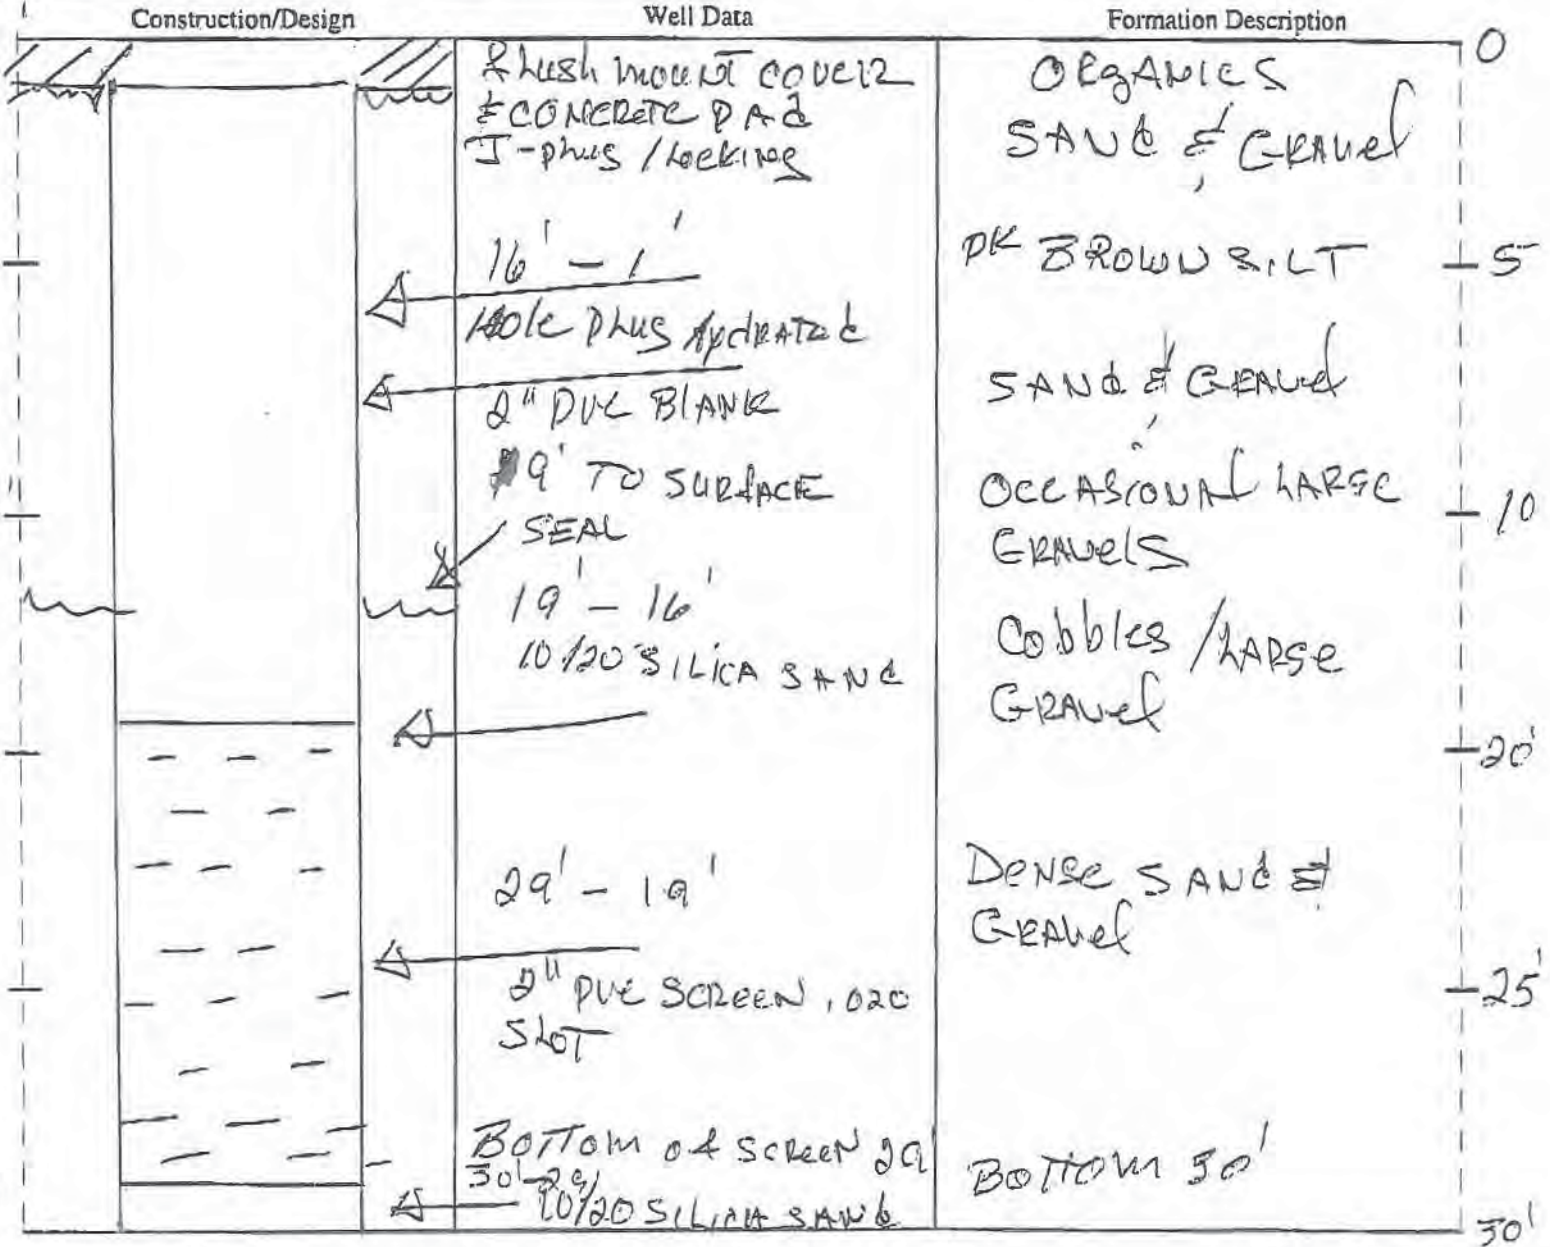 Construction/Design
Well Data
Formation Description
flush mount cover
& CONCRETE PAd
J-plug / Locking
16' - 1'
Hole Plug hydrated
2" PVC BLANK
9' TO SURFACE
SEAL
19' - 16'
10/20 SILICA SANd
29' - 19'
2" PVC SCREEN .020
SLOT
BOTTOM of SCREEN 29'
30'-29'
10/20 SILICA SANd
ORgANICS
SANd & GRAVel
DK BROWN SILT
SANd & GRAVel
OCCASIONAL LARGE
GRAVelS
Cobbles / LARGE
GRAVel
DeNSe SANd &
GRAVel
BOTTOM 30'
0
5
10
20'
25'
30'